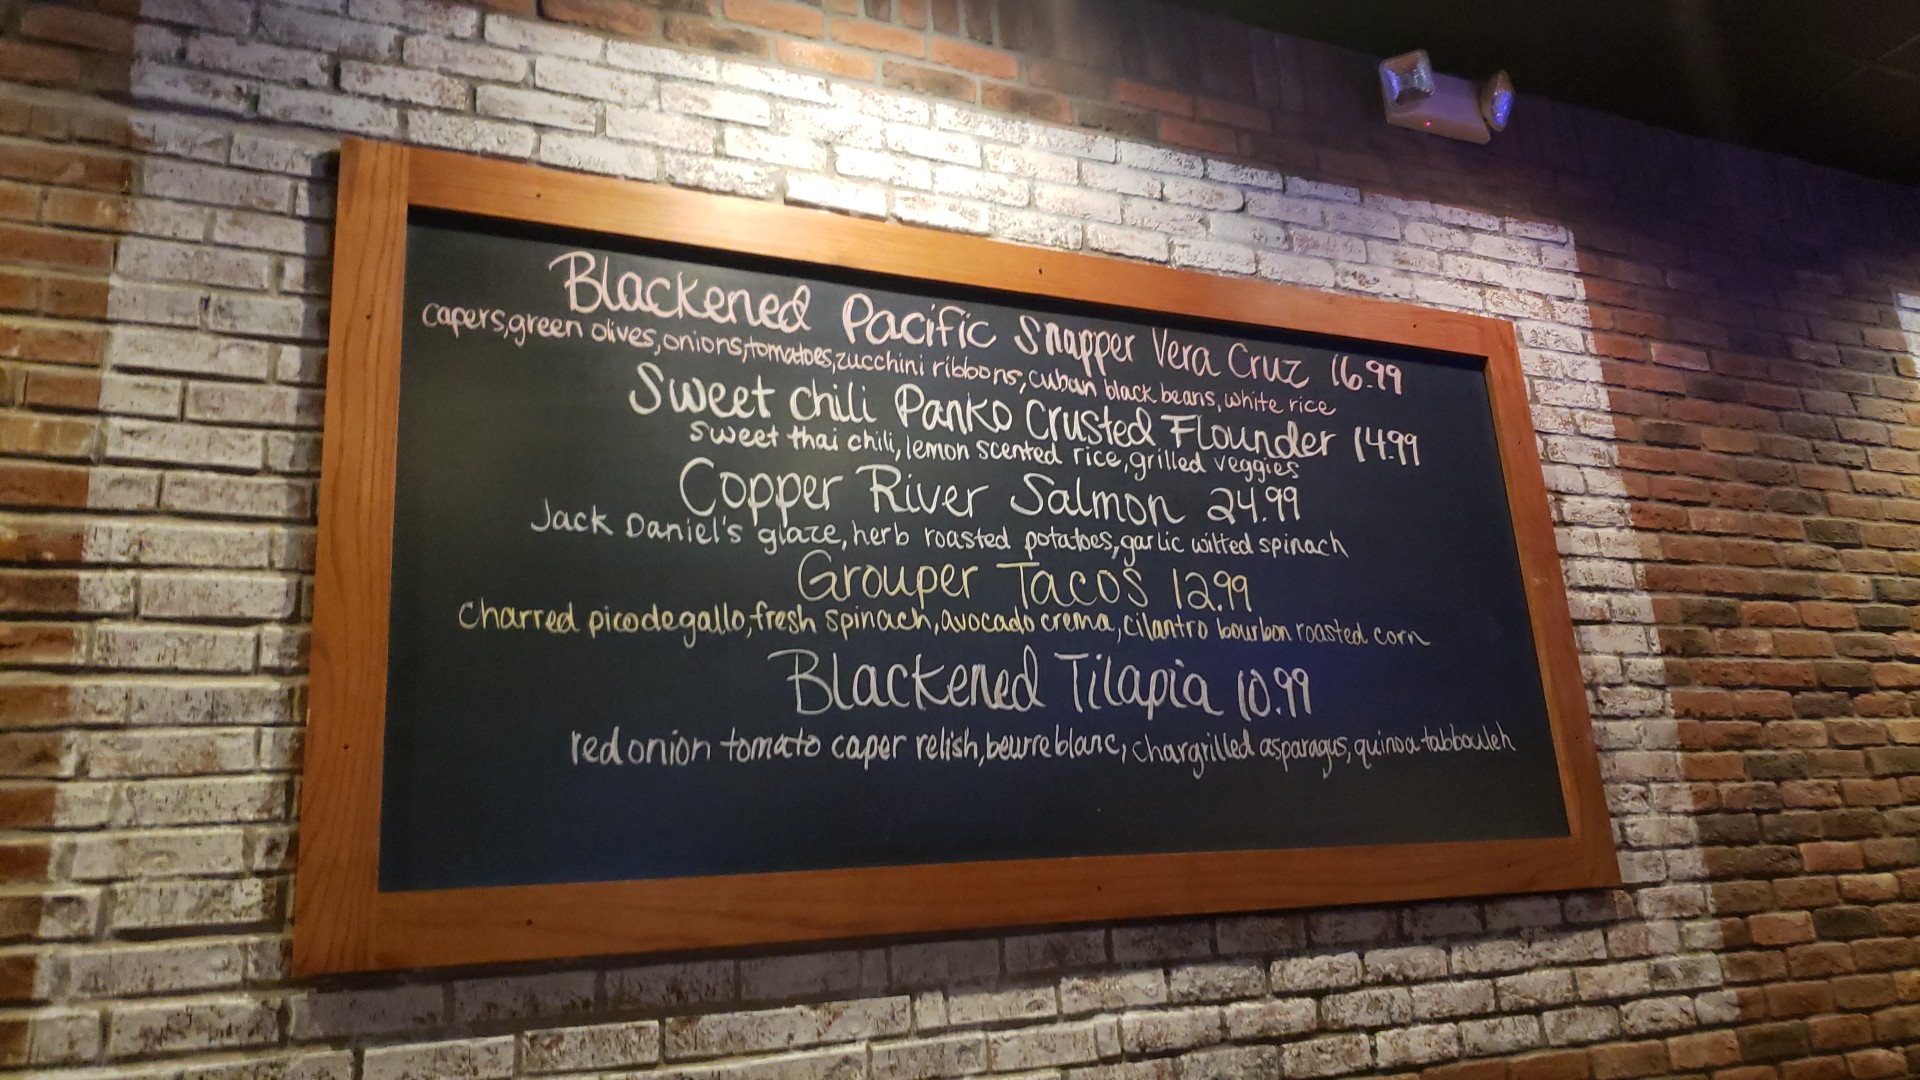 Blackened Pacific Snapper Vera Cruz 16.99
capers, green olives, onions, tomatoes, zucchini ribbons, cuban black beans, white rice
Sweet chili Panko Crusted Flounder 14.99
sweet thai chili, lemon scented rice, grilled veggies
Copper River Salmon 24.99
Jack Daniel's glaze, herb roasted potatoes, garlic wilted spinach
Grouper Tacos 12.99
Charred pico de gallo, fresh spinach, avocado crema, cilantro bourbon roasted corn
Blackened Tilapia 10.99
red onion tomato caper relish, beurre blanc, chargrilled asparagus, quinoa tabbouleh